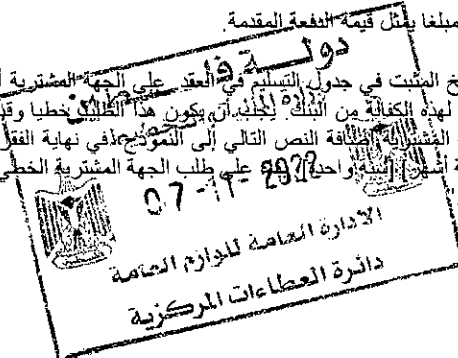 مبلغا يمثل قيمة الدفعة المقدمة.
خ المثبت في جدول التسليم في العقد. على الجهة المشترية أ
لهذه الكفالة من البنك. يجب أن يكون هذا الطلب خطيا وقد
المشترية إضافة النص التالي إلى النموذج، في نهاية الفقر
ة أشهر] [سنة واحدة] على طلب الجهة المشترية الخطي
دولة
وزارة
07-11-2022
الادارة العامة للوازم العامة
دائرة العطاءات المركزية